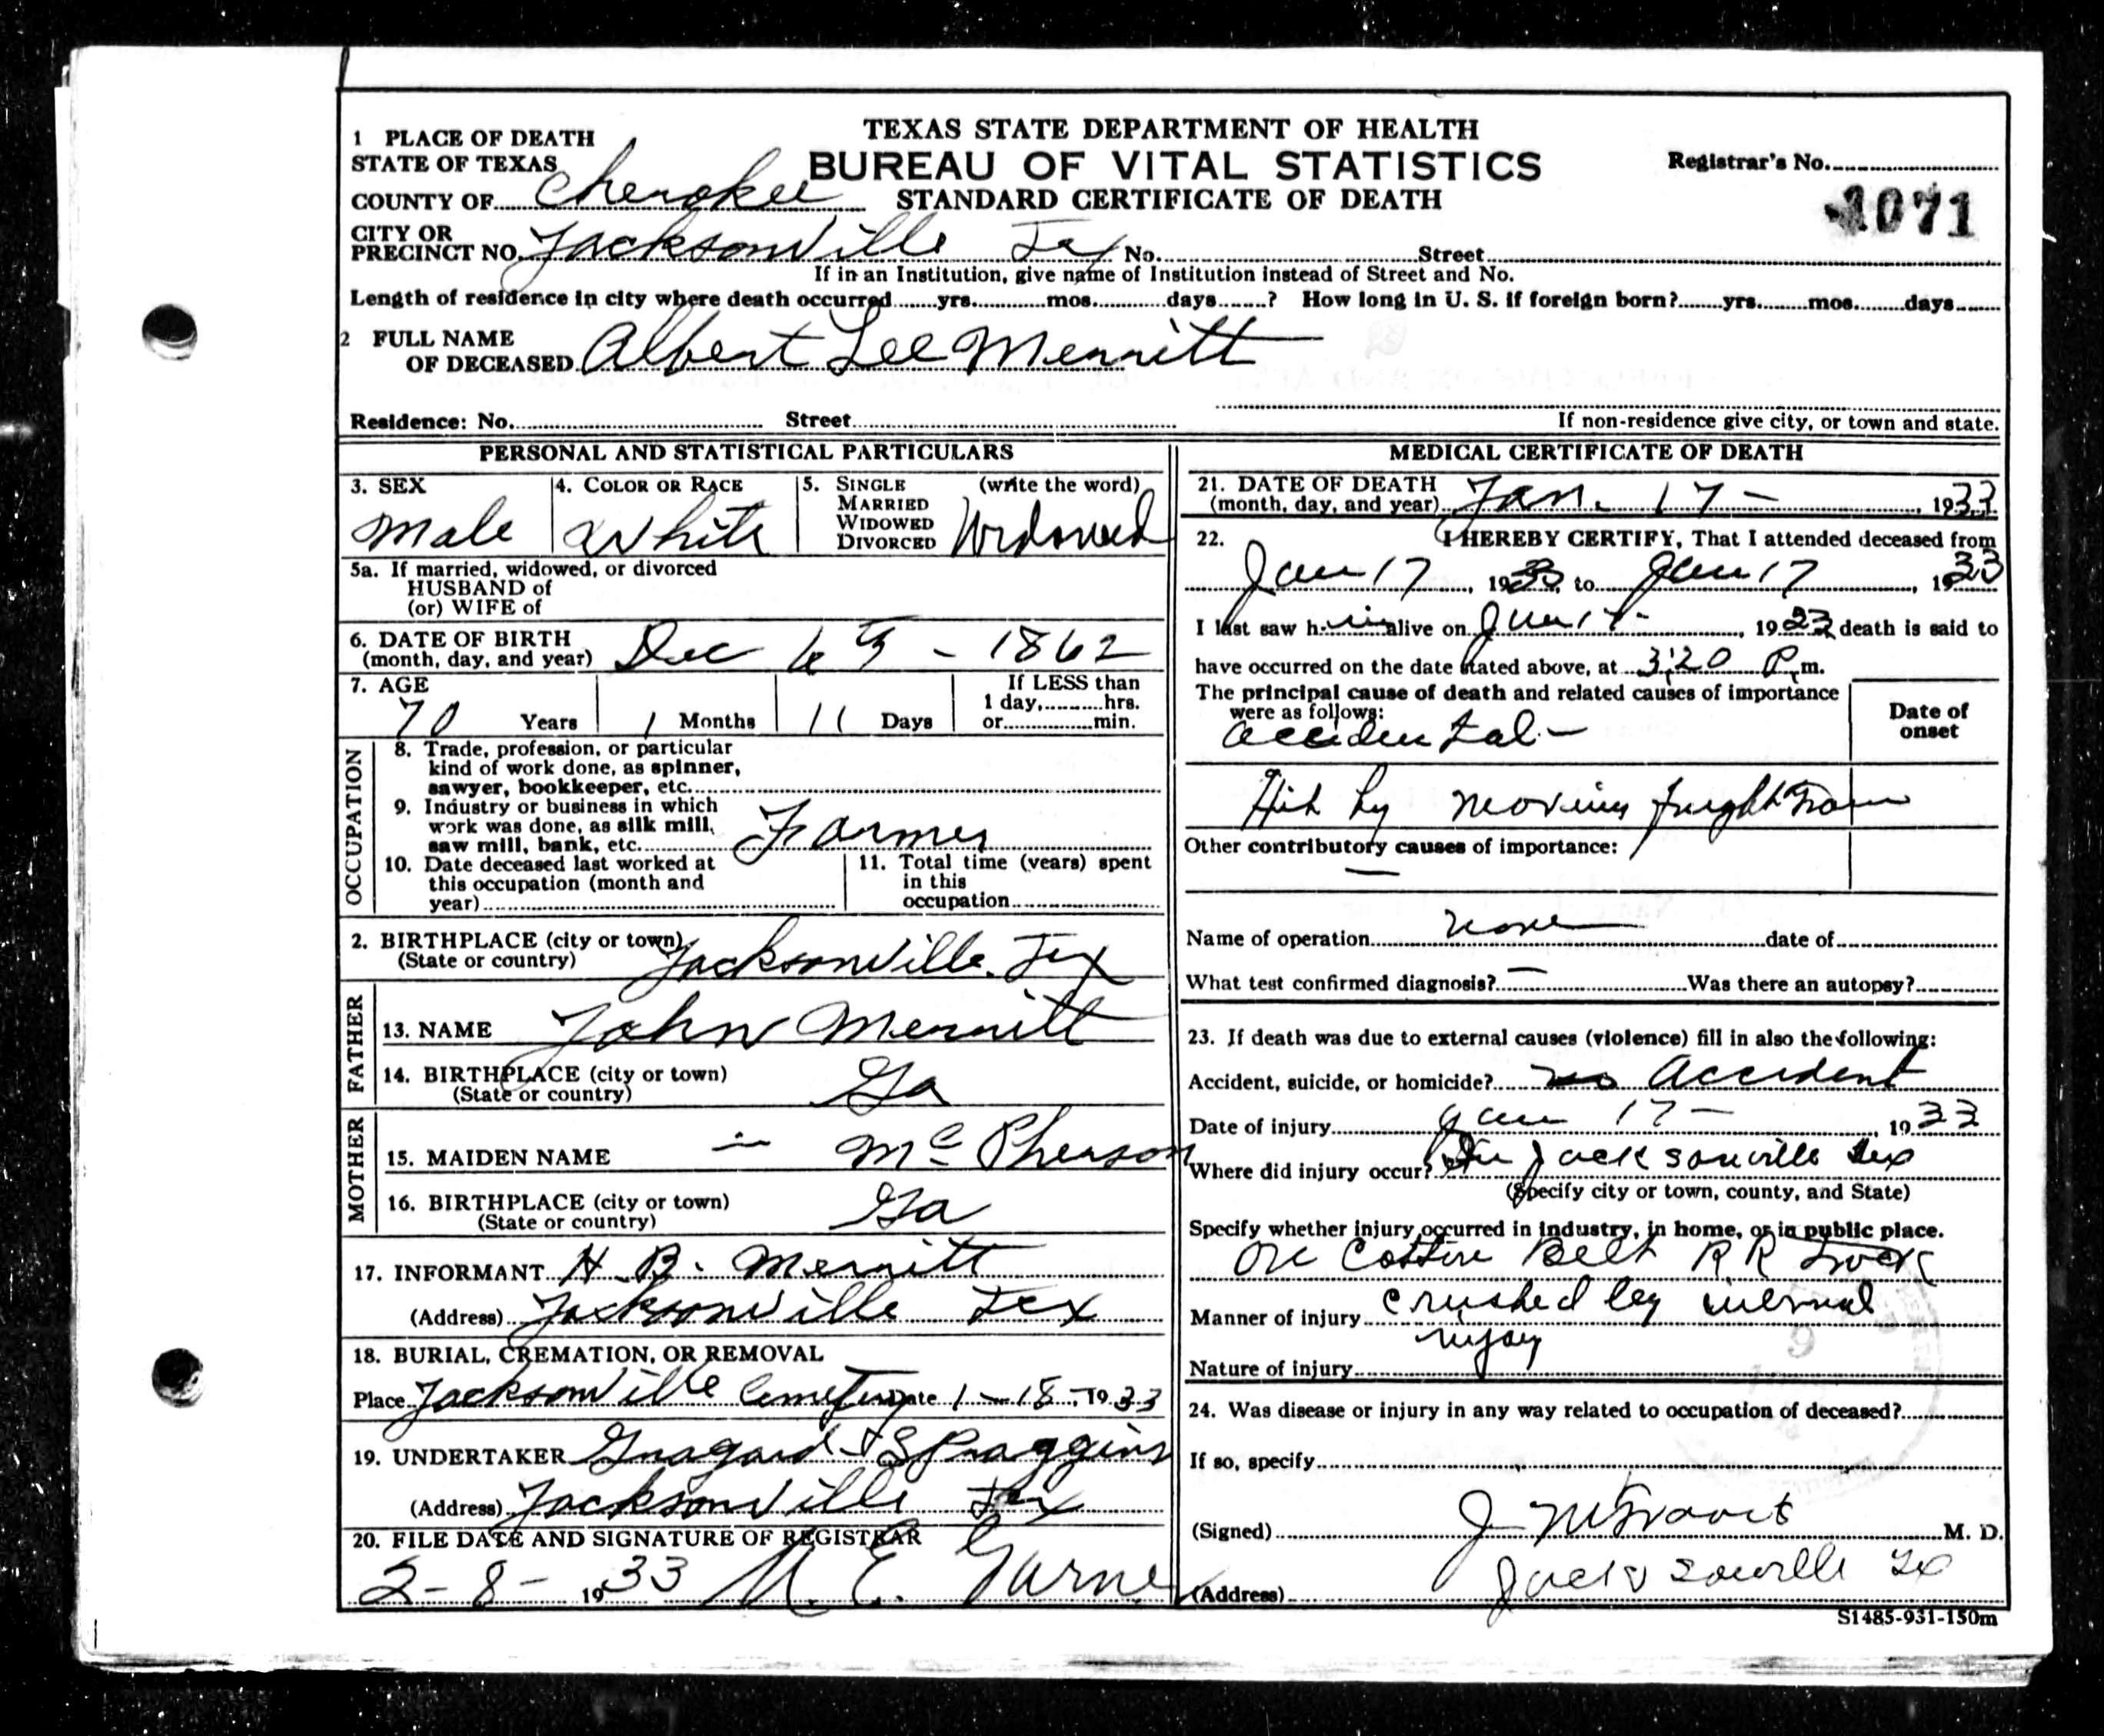 TEXAS STATE DEPARTMENT OF HEALTH
BUREAU OF VITAL STATISTICS
STANDARD CERTIFICATE OF DEATH
Registrar's No.
1071
1 PLACE OF DEATH
STATE OF TEXAS
COUNTY OF Cherokee
CITY OR
PRECINCT NO. Jacksonville Tex No. Street
If in an Institution, give name of Institution instead of Street and No.
Length of residence in city where death occurred yrs. mos. days ? How long in U. S. if foreign born? yrs. mos. days
2 FULL NAME
OF DECEASED Albert Lee Merritt
Residence: No. Street
If non-residence give city, or town and state.
PERSONAL AND STATISTICAL PARTICULARS
3. SEX 4. COLOR OR RACE 5. SINGLE (write the word)
MARRIED
WIDOWED
DIVORCED
Male White Widowed
5a. If married, widowed, or divorced
HUSBAND of
(or) WIFE of
6. DATE OF BIRTH
(month, day, and year) Dec 6th - 1862
7. AGE If LESS than
1 day, hrs.
70 Years 1 Months 11 Days or min.
OCCUPATION
8. Trade, profession, or particular
kind of work done, as spinner,
sawyer, bookkeeper, etc.
9. Industry or business in which
work was done, as silk mill,
saw mill, bank, etc. Farmer
10. Date deceased last worked at
this occupation (month and
year)
11. Total time (years) spent
in this
occupation
2. BIRTHPLACE (city or town)
(State or country) Jacksonville. Tex
FATHER
13. NAME John Merritt
14. BIRTHPLACE (city or town)
(State or country) Ga
MOTHER
15. MAIDEN NAME — McPherson
16. BIRTHPLACE (city or town)
(State or country) Ga
17. INFORMANT H. B. Merritt
(Address) Jacksonville Tex
18. BURIAL, CREMATION, OR REMOVAL
Place Jacksonville Cemetery Date 1-18-, 1933
19. UNDERTAKER & Spraggins
(Address) Jacksonville Tex
20. FILE DATE AND SIGNATURE OF REGISTRAR
2-8- 1933 E.
MEDICAL CERTIFICATE OF DEATH
21. DATE OF DEATH
(month, day, and year) Jan. 17 - , 1933
22. I HEREBY CERTIFY, That I attended deceased from
Jan 17, 1933, to Jan 17, 1933
I last saw him alive on Jan 17 - , 1933, death is said to
have occurred on the date stated above, at 3:20 P. m.
The principal cause of death and related causes of importance
were as follows:
Date of
onset
accidental -
Hit by moving freight train
Other contributory causes of importance:
—
Name of operation none date of
What test confirmed diagnosis? — Was there an autopsy?
23. If death was due to external causes (violence) fill in also the following:
Accident, suicide, or homicide? Accident
Date of injury Jan 17 - , 1933
Where did injury occur? In Jacksonville Tex
(Specify city or town, county, and State)
Specify whether injury occurred in industry, in home, or in public place.
On Cotton Belt RR Track
Manner of injury crushed leg internal
injury
Nature of injury
24. Was disease or injury in any way related to occupation of deceased?
If so, specify
(Signed) J M Travis M. D.
(Address) Jacksonville Tex
S1485-931-150m